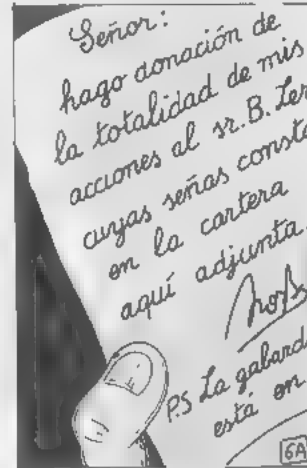 Señor:
hago donación de
la totalidad de mis
acciones al sr. B. Ler
cuyas señas consta
en la cartera
aquí adjunta.
P.S La gabard
está en
6A